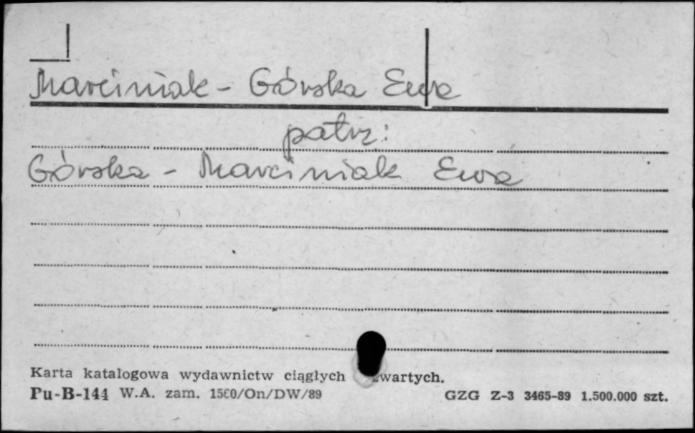 Marciniak - Górska Ewa
patrz:
Górska - Marciniak Ewa
Karta katalogowa wydawnictw ciągłych zwartych.
Pu-B-144 W.A. zam. 1560/On/DW/89 GZG Z-3 3465-89 1.500.000 szt.